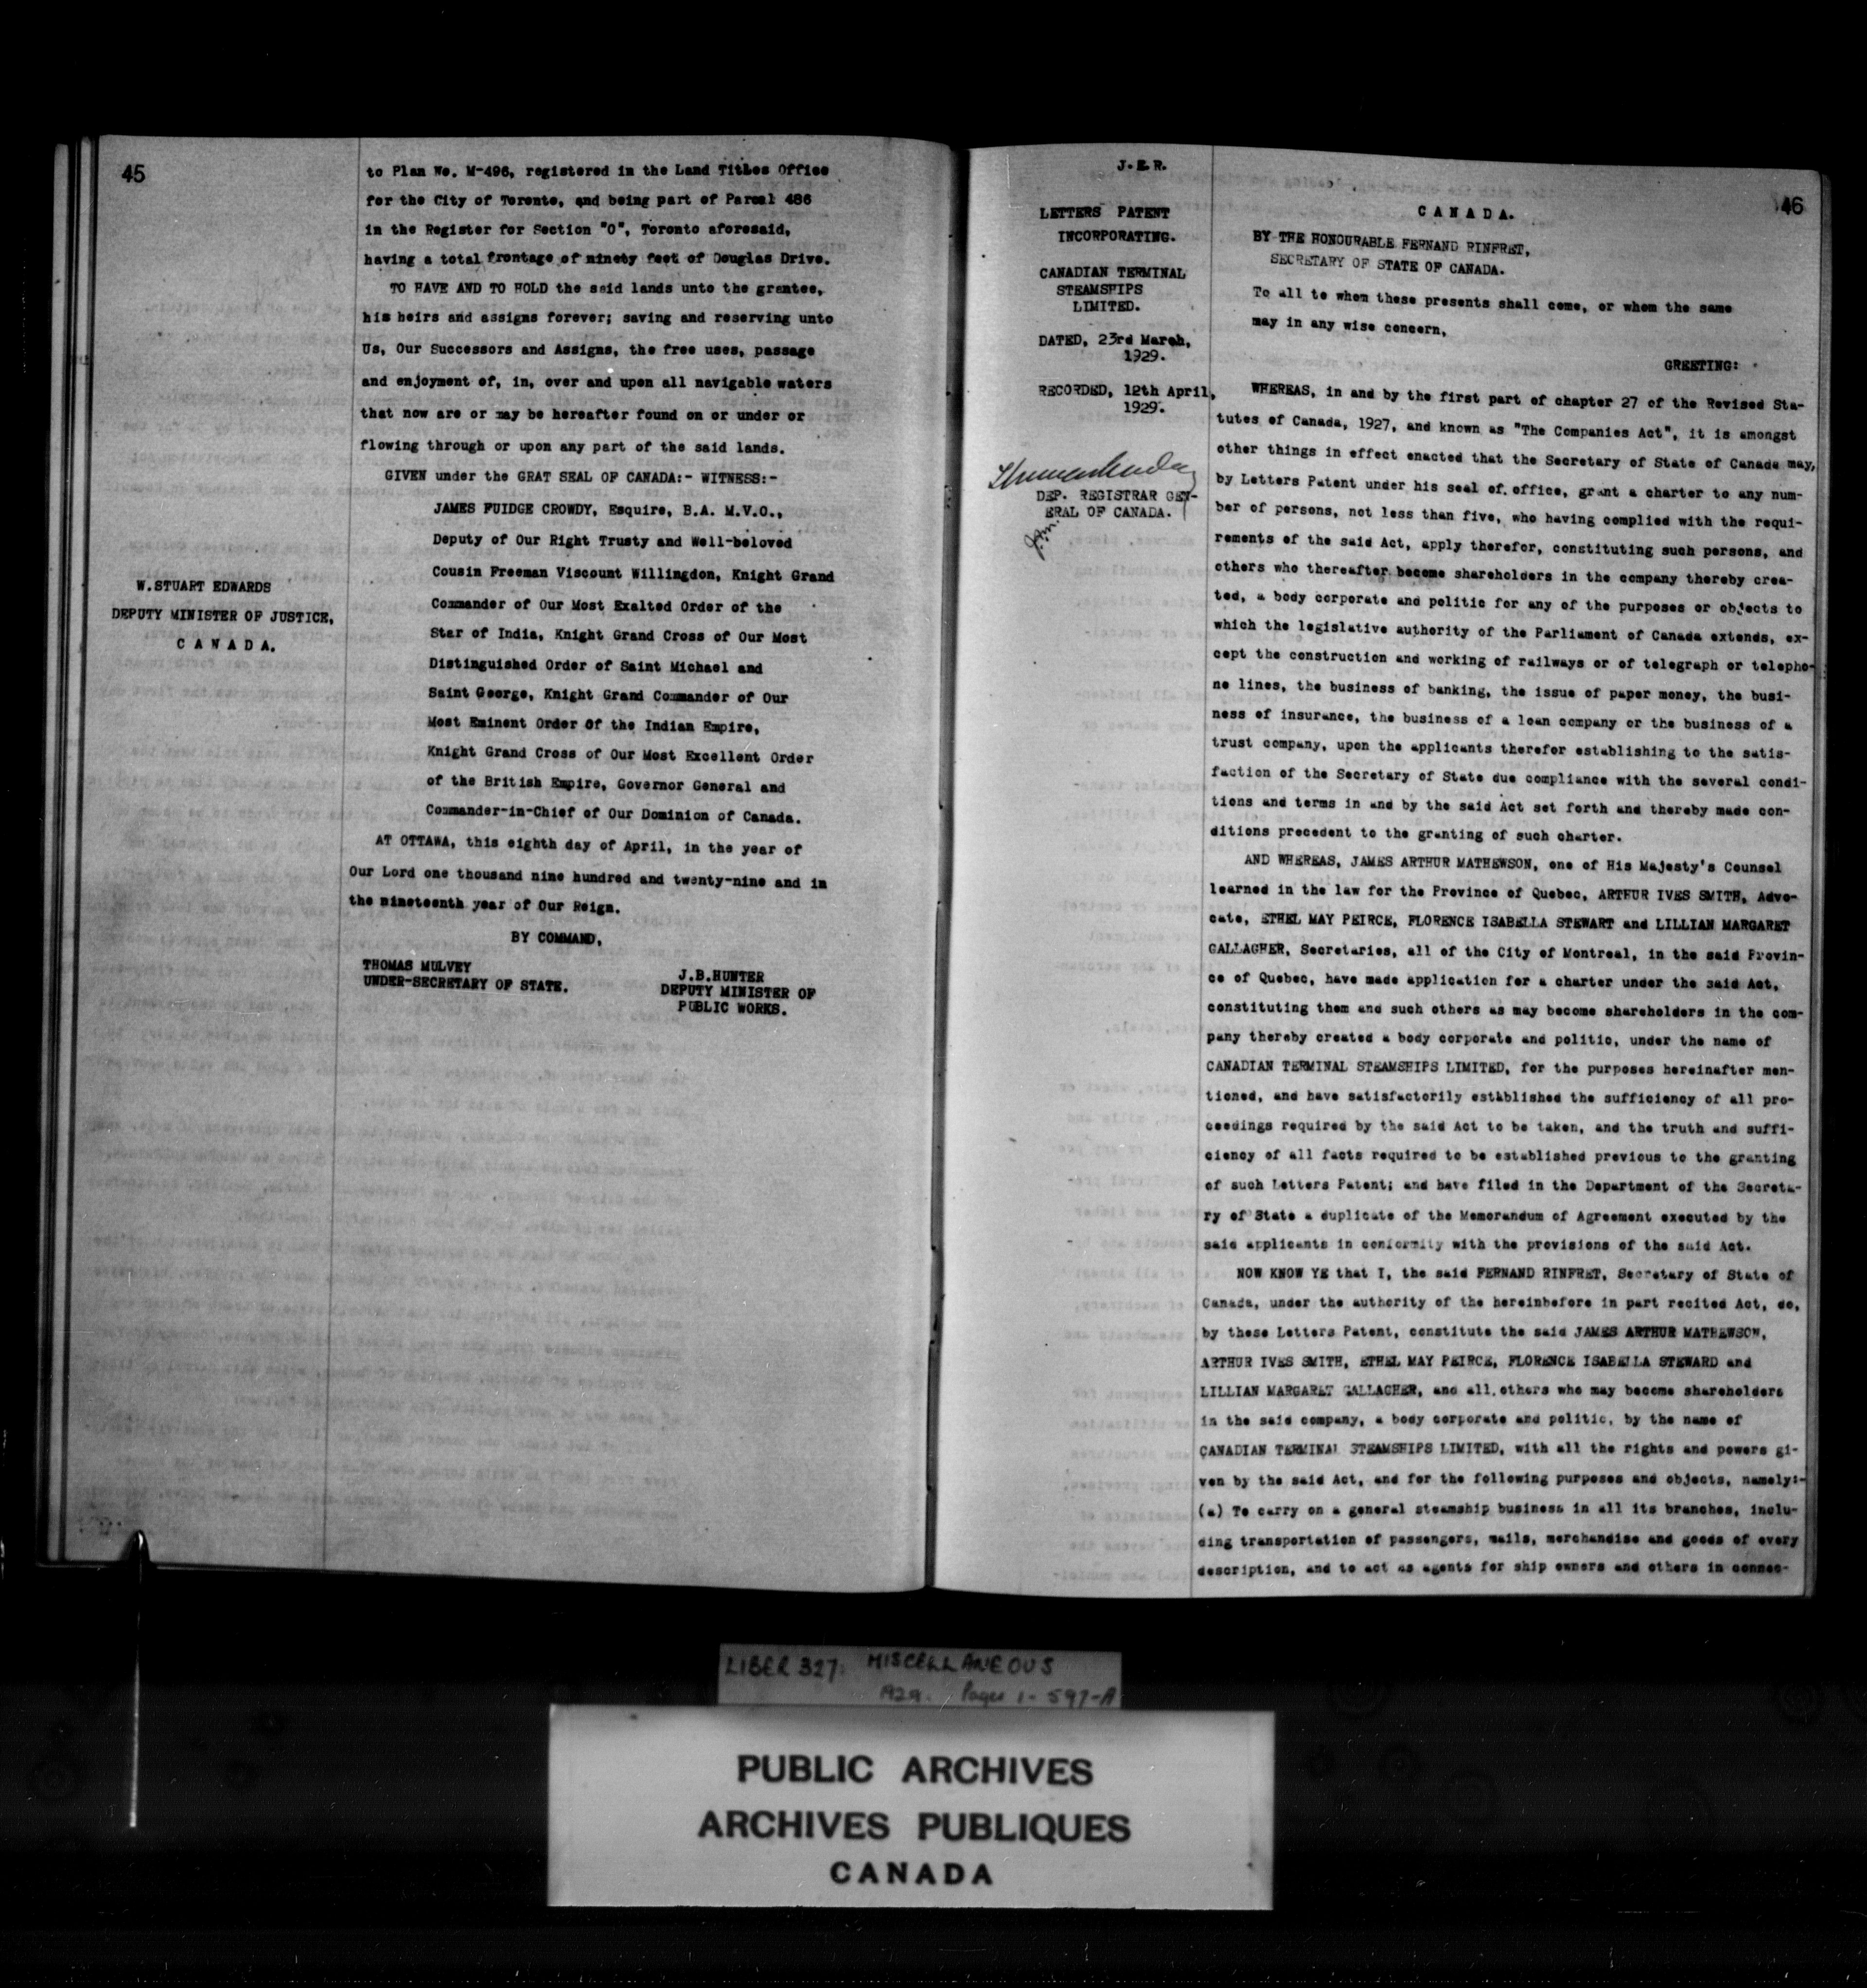 45
to Plan No. M-496, registered in the Land Titles Office
for the City of Toronto, and being part of Parcel 486
in the Register for Section "O", Toronto aforesaid,
having a total frontage of ninety feet of Douglas Drive.
TO HAVE AND TO HOLD the said lands unto the grantee,
his heirs and assigns forever; saving and reserving unto
Us, Our Successors and Assigns, the free uses, passage
and enjoyment of, in, over and upon all navigable waters
that now are or may be hereafter found on or under or
flowing through or upon any part of the said lands.
GIVEN under the GRAT SEAL OF CANADA:- WITNESS:-
JAMES FUIDGE CROWDY, Esquire, B.A. M.V.O.,
Deputy of Our Right Trusty and Well-beloved
Cousin Freeman Viscount Willingdon, Knight Grand
Commander of Our Most Exalted Order of the
Star of India, Knight Grand Cross of Our Most
Distinguished Order of Saint Michael and
Saint George, Knight Grand Commander of Our
Most Eminent Order Of the Indian Empire,
Knight Grand Cross of Our Most Excellent Order
of the British Empire, Governor General and
Commander-in-Chief of Our Dominion of Canada.
W.STUART EDWARDS
DEPUTY MINISTER OF JUSTICE,
C A N A D A.
AT OTTAWA, this eighth day of April, in the year of
Our Lord one thousand nine hundred and twenty-nine and in
the nineteenth year of Our Reign.
BY COMMAND,
THOMAS MULVEY
UNDER-SECRETARY OF STATE.
J.B.HUNTER
DEPUTY MINISTER OF
PUBLIC WORKS.
J.E.R.
46
LETTERS PATENT
INCORPORATING.
CANADIAN TERMINAL
STEAMSHIPS
LIMITED.
DATED, 23rd March,
1929.
RECORDED, 12th April,
1929.
DEP. REGISTRAR GEN-
ERAL OF CANADA.
C A N A D A.
BY THE HONOURABLE FERNAND RINFRET,
SECRETARY OF STATE OF CANADA.
To all to whom these presents shall come, or whom the same
may in any wise concern,
GREETING:
WHEREAS, in and by the first part of chapter 27 of the Revised Sta-
tutes of Canada, 1927, and known as "The Companies Act", it is amongst
other things in effect enacted that the Secretary of State of Canada may,
by Letters Patent under his seal of. office, grant a charter to any num-
ber of persons, not less than five, who having complied with the requi-
rements of the said Act, apply therefor, constituting such persons, and
others who thereafter become shareholders in the company thereby crea-
ted, a body corporate and politic for any of the purposes or objects to
which the legislative authority of the Parliament of Canada extends, ex-
cept the construction and working of railways or of telegraph or telepho-
ne lines, the business of banking, the issue of paper money, the busi-
ness of insurance, the business of a loan company or the business of a
trust company, upon the applicants therefor establishing to the satis-
faction of the Secretary of State due compliance with the several condi-
tions and terms in and by the said Act set forth and thereby made con-
ditions precedent to the granting of such charter.
AND WHEREAS, JAMES ARTHUR MATHEWSON, one of His Majesty's Counsel
learned in the law for the Province of Quebec, ARTHUR IVES SMITH, Advo-
cate, ETHEL MAY PEIRCE, FLORENCE ISABELLA STEWART and LILLIAN MARGARET
GALLAGHER, Secretaries, all of the City of Montreal, in the said Provin-
ce of Quebec, have made application for a charter under the said Act,
constituting them and such others as may become shareholders in the com-
pany thereby created a body corporate and politic, under the name of
CANADIAN TERMINAL STEAMSHIPS LIMITED, for the purposes hereinafter men-
tioned, and have satisfactorily established the sufficiency of all pro-
ceedings required by the said Act to be taken, and the truth and suffi-
ciency of all facts required to be established previous to the granting
of such Letters Patent; and have filed in the Department of the Secreta-
ry of State a duplicate of the Memorandum of Agreement executed by the
said applicants in conformity with the provisions of the said Act.
NOW KNOW YE that I, the said FERNAND RINFRET, Secretary of State of
Canada, under the authority of the hereinbefore in part recited Act, do,
by these Letters Patent, constitute the said JAMES ARTHUR MATHEWSON,
ARTHUR IVES SMITH, ETHEL MAY PEIRCE, FLORENCE ISABELLA STEWARD and
LILLIAN MARGARET GALLAGHER, and all others who may become shareholders
in the said company, a body corporate and politic, by the name of
CANADIAN TERMINAL STEAMSHIPS LIMITED, with all the rights and powers gi-
ven by the said Act, and for the following purposes and objects, namely:-
(a) To carry on a general steamship business in all its branches, inclu-
ding transportation of passengers, mails, merchandise and goods of every
description, and to act as agents for ship owners and others in connec-
LIBER 327. MISCELLANEOUS
1929. Pages 1-597-A
PUBLIC ARCHIVES
ARCHIVES PUBLIQUES
CANADA